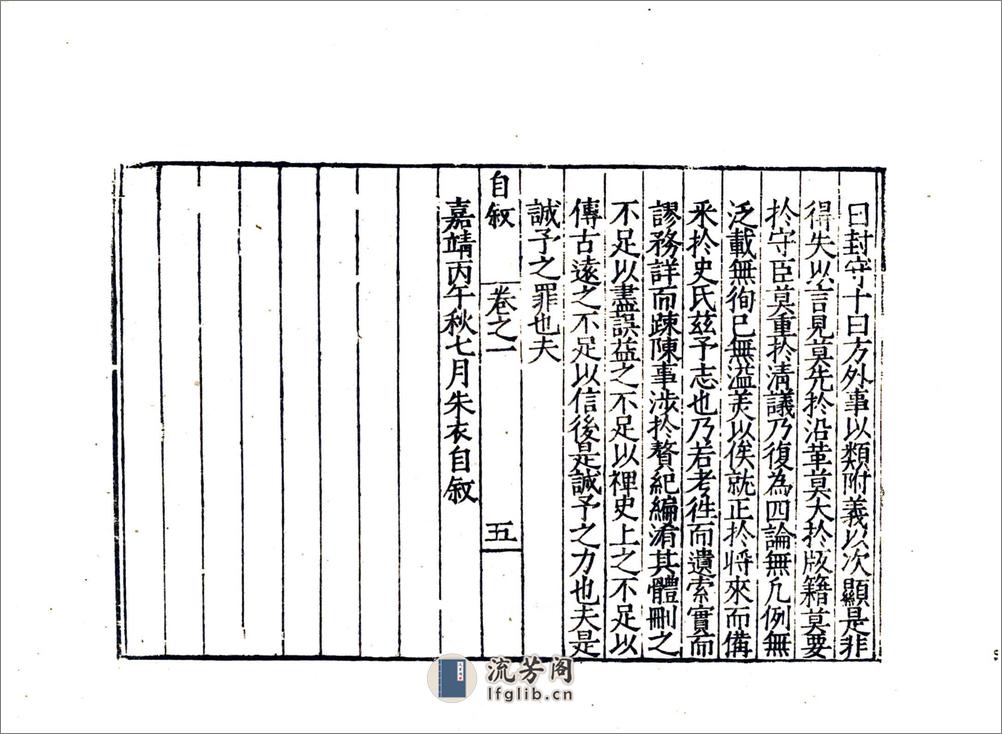 曰封守十曰方外事以類附義以次顯是非
得失以言見莫先於沿革莫大於版籍莫要
於守臣莫重於清議乃復為四論無凡例無
泛載無徇已無溢美以俟就正於將來而備
釆於史氏茲予志也乃若考徃而遺索實而
謬務詳而踈陳事涉於贅紀編淆其體刪之
不足以盡誤益之不足以裨史上之不足以
傳古遠之不足以信後是誠予之力也夫是
誠予之罪也夫
自敘
卷之一
五
嘉靖丙午秋七月朱衣自敘
流芳阁
lfglib.cn